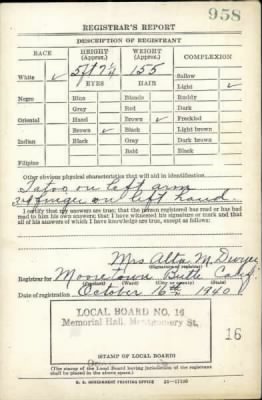 958
REGISTRAR'S REPORT
DESCRIPTION OF REGISTRANT
RACE HEIGHT (Approx.) WEIGHT (Approx.) COMPLEXION
White ✓ 5 ft 7½ 155 Sallow
EYES HAIR Light ✓
Negro Blue Blonde Ruddy
Gray Red Dark
Oriental Hazel Brown ✓ Freckled
Brown ✓ Black Light brown
Indian Black Gray Dark brown
Bald Black
Filipino
Other obvious physical characteristics that will aid in identification
Tatoo on left arm
finger on left hand.
I certify that my answers are true; that the person registered has read or has had
read to him his own answers; that I have witnessed his signature or mark and that
all of his answers of which I have knowledge are true, except as follows:
Mrs Alta M. Dwyer
(Signature of registrar)
Registrar for Mooretown Butte Calif
(Precinct) (Ward) (City or county) (State)
Date of registration October 16th 1940
LOCAL BOARD NO. 16
Memorial Hall, Montgomery St.,
16
STAMP OF LOCAL BOARD
(The stamp of the Local Board having jurisdiction of the registrant
shall be placed in the above space.)
U. S. GOVERNMENT PRINTING OFFICE